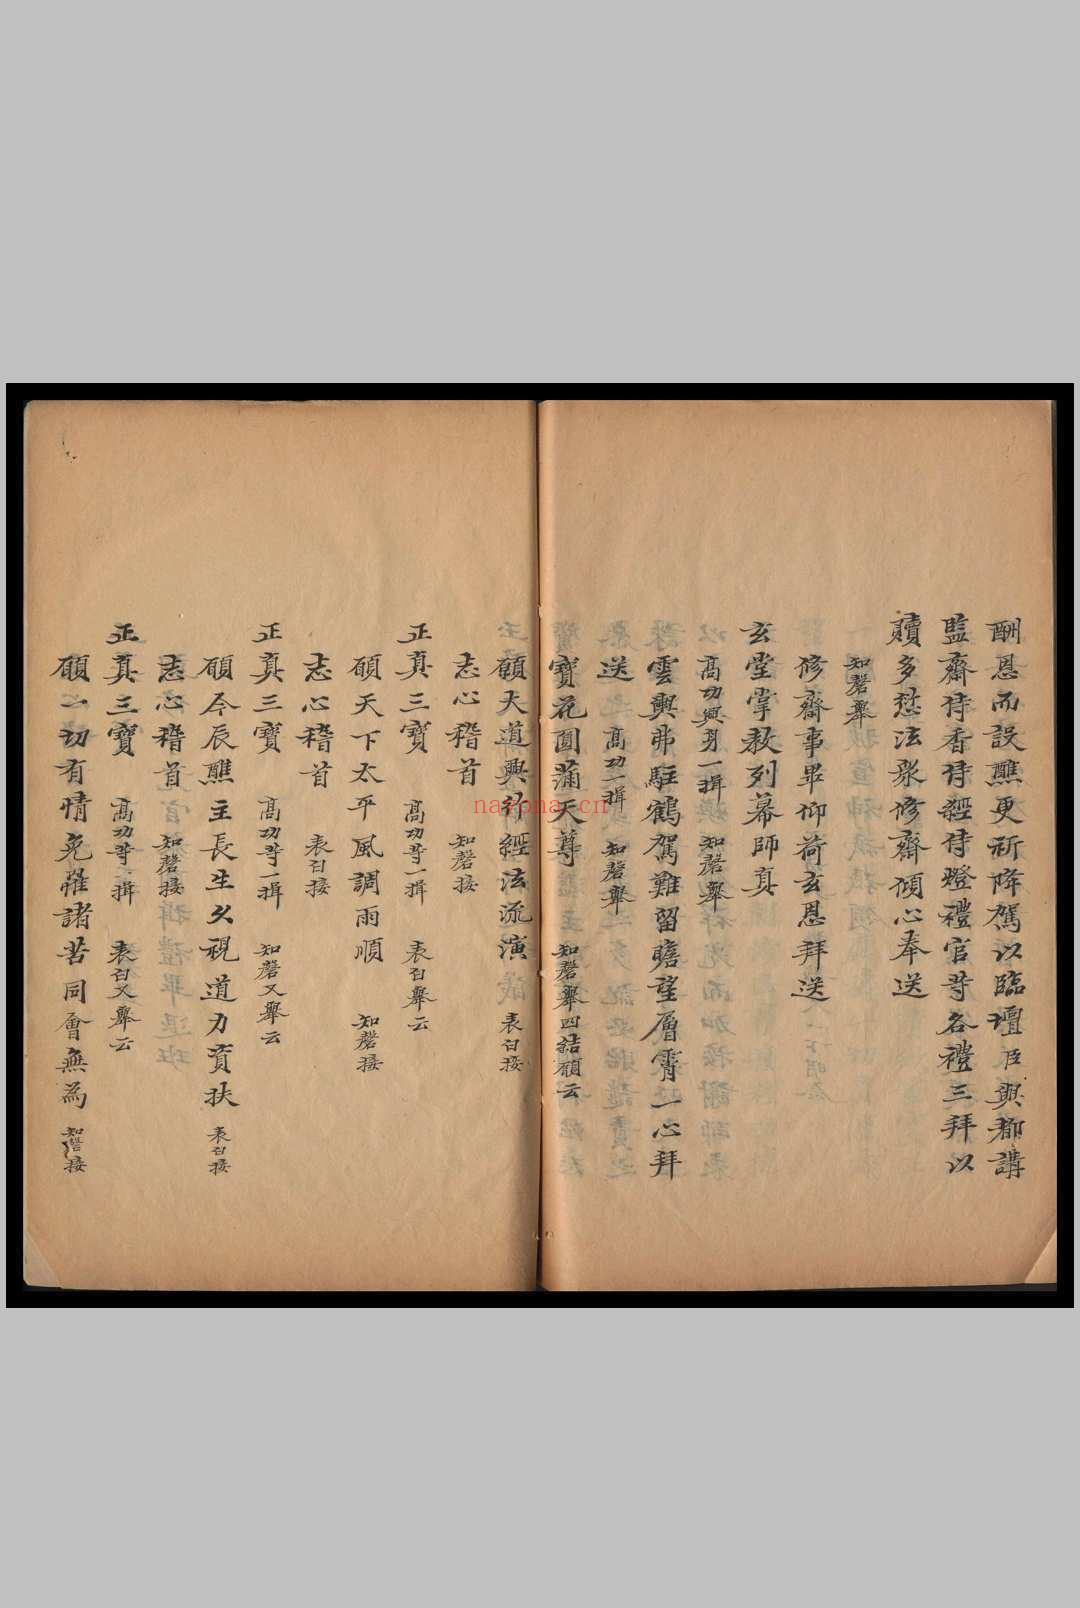 酬恩而設醮更祈降駕以臨壇臣與都講
監齋侍香侍經侍燈禮官䓁各禮三拜以
贖多愆法衆修齋傾心奉送
知磬舉
修齋事畢仰荷玄恩拜送
玄堂掌教列幕師真
高功興身一揖 知磬舉
雲輿弗駐鶴駕難留瞻望層霄一心拜
送 高功一揖 知磬舉
寶花圓滿天尊 知磬舉四結願云
願大道興行經法流演 表白接
志心稽首 知磬接
正真三寶 高功䓁一揖 表白舉云
願天下太平風調雨順 知磬接
志心稽首 表白接
正真三寶 高功䓁一揖 知磬又舉云
願今辰醮主長生久視道力資扶 表白接
志心稽首 知磬接
正真三寶 高功䓁一揖 表白又舉云
願一切有情免罹諸苦同會無為 知磬接
nayona.cn